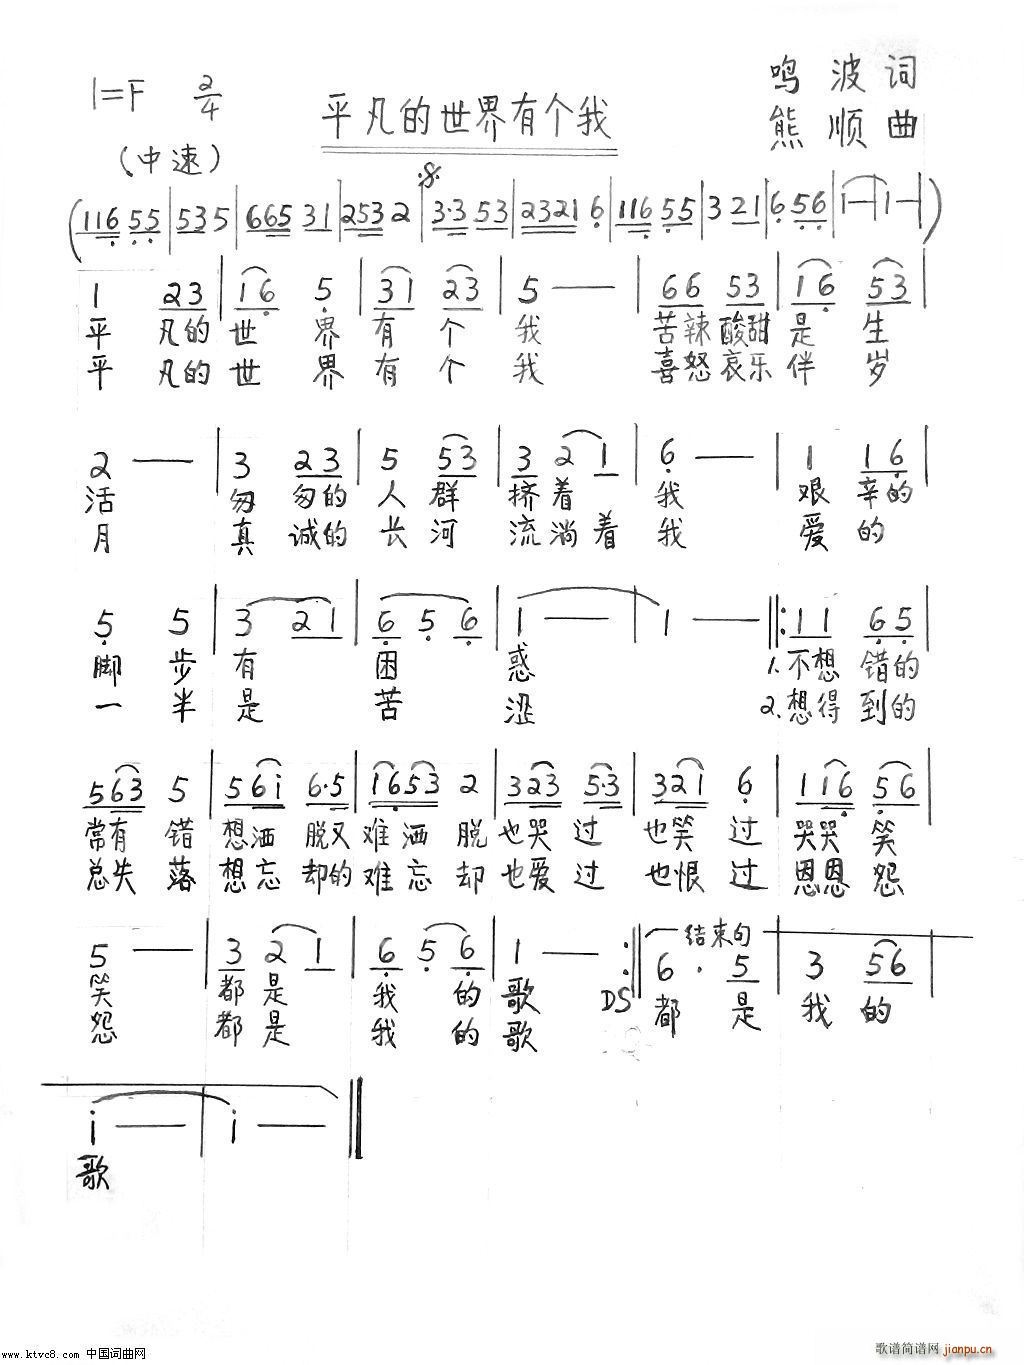 1=F 2/4
平凡的世界有个我
鸣波词
熊顺曲
(中速)
(116 55|535|665 31|253 2|3·3 53|2321 6|116 55|3 21|6 56|1—|1—|)
1 23|16 5|31 23|5—|66 53|16 53|
平 凡的 世 界 有 个 我 苦辣酸甜 是 生
平 凡的 世 界 有 个 我 喜怒哀乐 伴 岁
2—|3 23|5 53|3 2 1|6—|1 16|
活 匆 匆的 人 群 挤 着 我 艰 辛的
月 真 诚的 长 河 流 淌 着 我 爱 的
5 5|3 21|6 5 6|1—|1—‖:11 65|
脚 步 有 困 惑 1.不想 错的
一 半 是 苦 涩 2.想得 到的
563 5|561 6·5|1653 2|323 53|321 6|116 56|
常有 错 想洒 脱又 难洒 脱 也哭 过 也笑 过 哭哭 笑
总失 落 想忘 却的 难忘 却 也爱 过 也恨 过 恩恩 怨
结束句
5—|3 2 1|6 5 6|1—:‖6· 5|3 56|
笑 都 是 我 的 歌 DS 都 是 我 的
怨 都 是 我 的 歌
i—|i—‖
歌
www.ktvc8.com 中国词曲网
歌谱简谱网 jianpu.cn